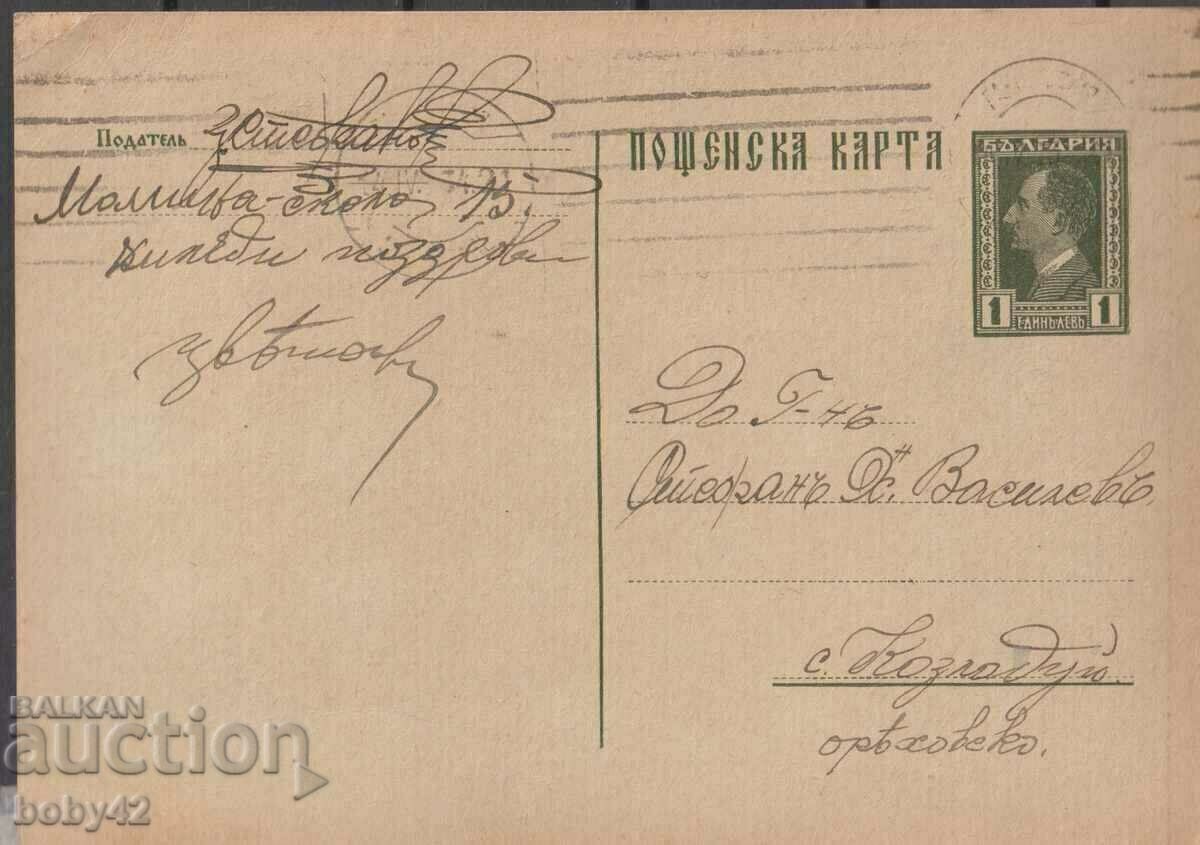 Податель Цстефановъ
15
хиляди поздрави
Цвѣтков
ПОЩЕНСКА КАРТА
БЪЛГАРИЯ
1 ЕДИНЪ ЛЕВЪ 1
До Г-нъ
Стефанъ Х. Василевъ
с. Козлодуй
орѣховско.
BALKAN
auction
boby42